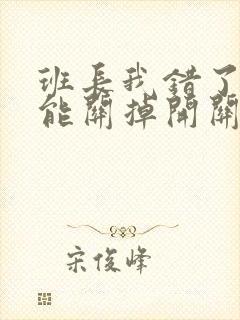 班长我错了
能關掉開關
宋俊峰